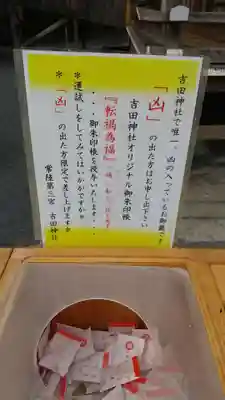 吉田神社で唯一、凶の入っているお御籤です
「凶」の出た方はお申し出下さい
吉田神社オリジナル御朱印帳
『転禍為福』
・・・御朱印帳を授与いたします・・・
*運試しをしてみてはいかがですか*
*「凶」の出た方限定で差し上げます*
常陸第三宮 吉田神社